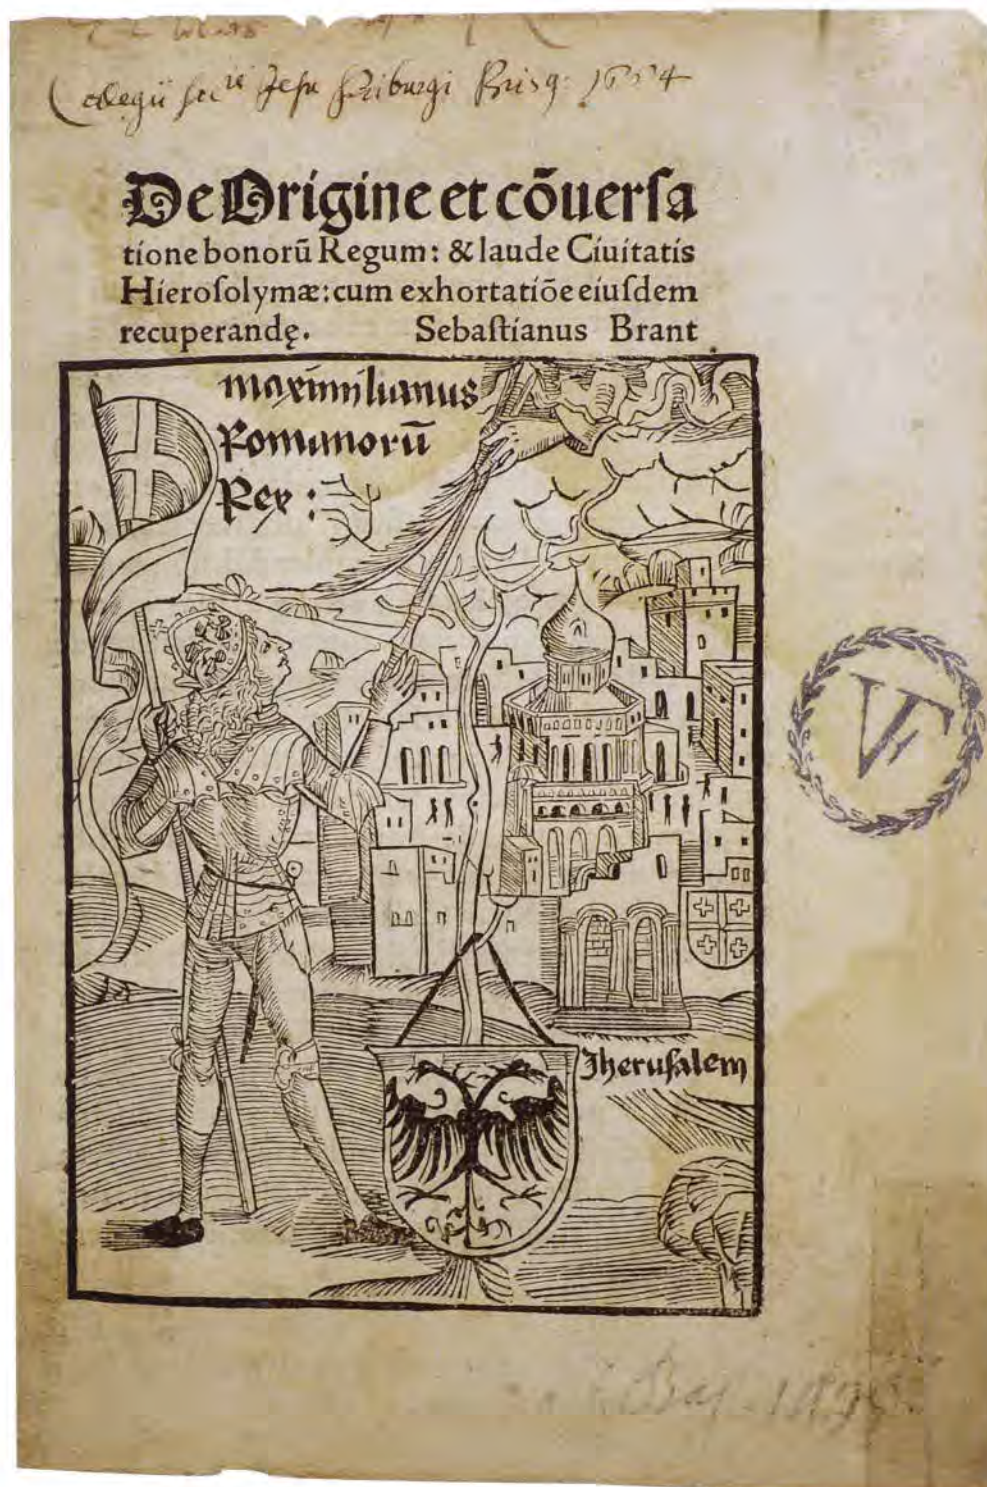 Collegii Soc^tis Jesu Friburgi Brisg: 1654
De Origine et cõuerſa
tione bonorũ Regum: & laude Ciuitatis
Hieroſolymæ: cum exhortatiõe eiuſdem
recuperandę. Sebaſtianus Brant
maximilianus
Romanorũ
Rex :
Jheruſalem